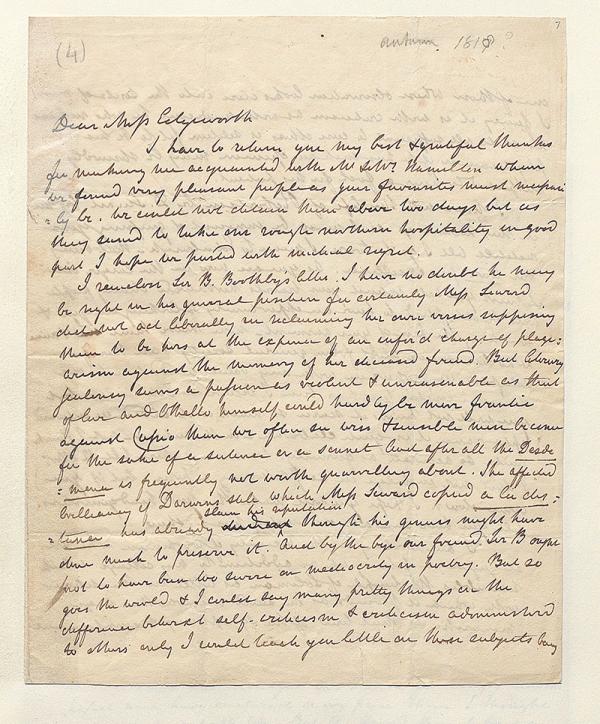 (4)
autumn 1818?
7
Dear Miss Edgeworth
I have to return you my best & grateful thanks
for making me acquainted with Mr & Mrs. Hamilton whom
we found very pleasant people as your favourites must necessari
=ly be. We could not detain them above two days but as
they seemd to take our rough northern hospitality in good
part I hope we parted with mutual regret.
I reinclose Sir B. Boothby's letter. I have no doubt he may
be right in his general position for certainly Miss Seward
did not act liberally in reclaiming her own verses supposing
them to be hers at the expence of an inferd charge of plagi=
arism against the memory of her deceased friend. But literary
jealousy seems a passion as violent & unreasonable as that
of love and Othello himself could hardly be more frantic
against Cassio than we often see wise & sensible men become
for the sake of a sentence or a sonnet and after all the Desde
=mona is frequently not worth quarrelling about. The affected
brilliancy of Darwins stile which Miss Seward copied a la dis=
=tance has already slain his reputation though his genius might have
done much to preserve it. And by the bye our friend Sir B ought
not to have been too severe on mediocrity in poetry. But so
goes the world & I could say many pretty things on the
difference betwixt self-criticism & criticism administerd
to others only I could teach you little on those subjects